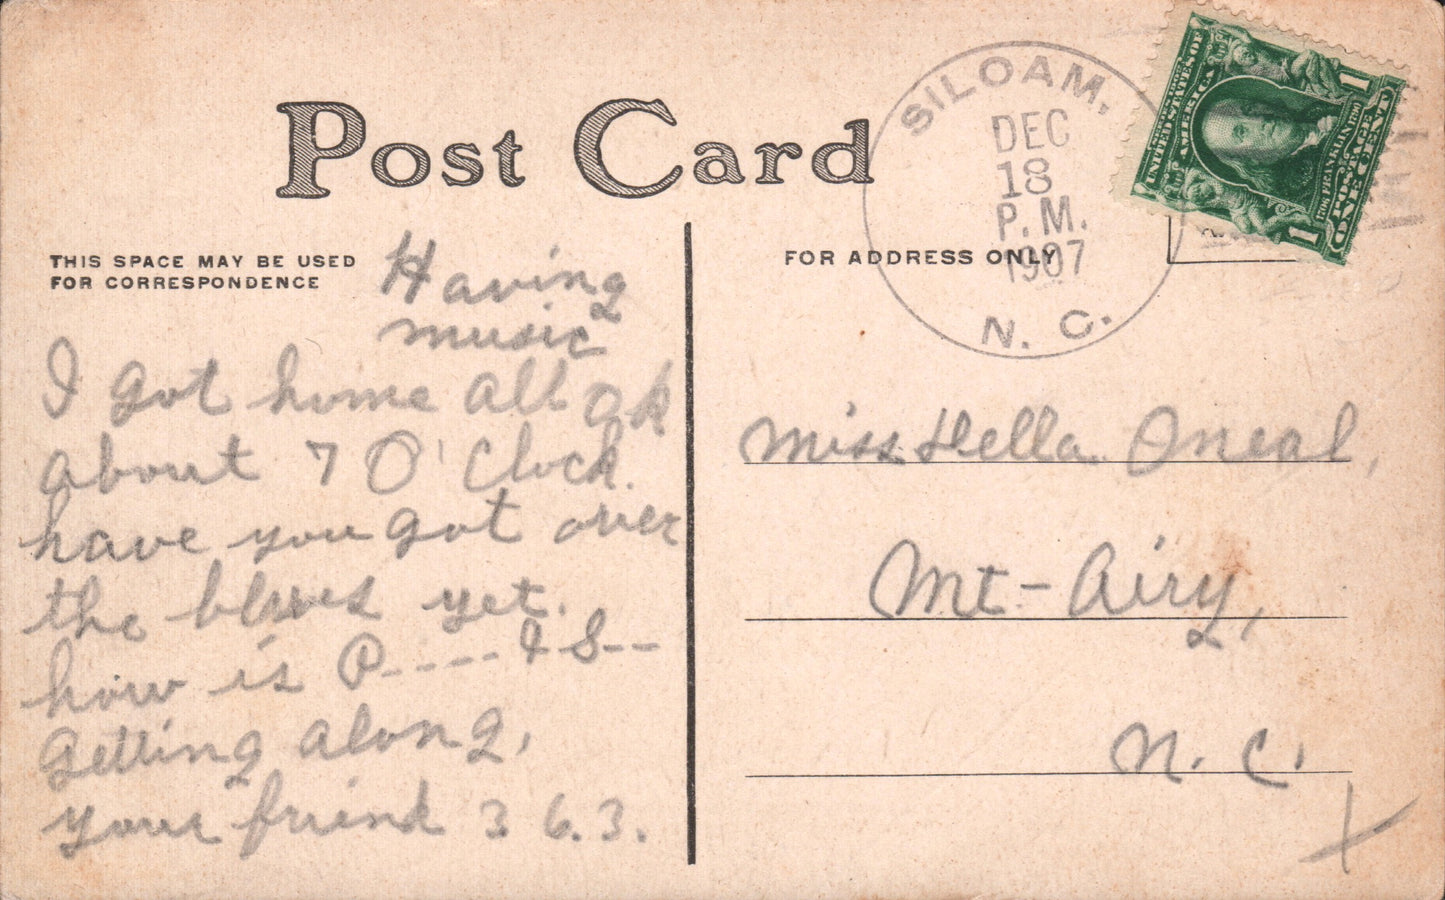 Post Card
SILOAM,
DEC
18
P.M.
1907
N. C.
UNITED STATES OF
AMERICA
1706 FRANKLIN 1790
POSTAGE
ONE CENT
1
1
THIS SPACE MAY BE USED
FOR CORRESPONDENCE
FOR ADDRESS ONLY
Having
music
I got home all ok
about 7 O' Clock.
have you got over
the blues yet.
how is P---- & S--
Getting along,
your friend 3 6.3.
Miss Della Oneal,
Mt-Airy,
N. C.